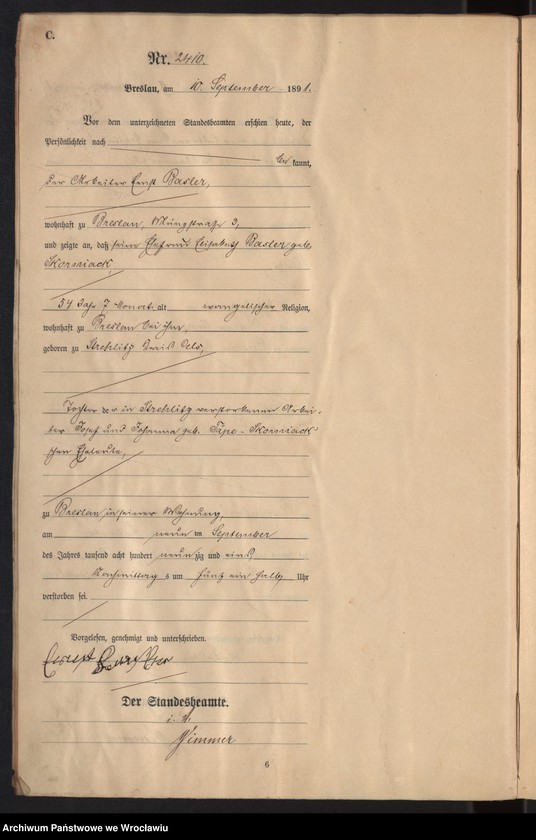 C.
Nr. 2410.
Breslau, am 10. September 1891.
Vor dem unterzeichneten Standesbeamten erschien heute, der
Persönlichkeit nach
kannt,
der Arbeiter Ernst Basler,
wohnhaft zu Breslau, Münzstraße 3,
und zeigte an, daß seine Ehefrau Elisabeth Basler geb.
Skorniack
54 Jahr 7 Monat alt evangelischer Religion,
wohnhaft zu Breslau bei ihm,
geboren zu Strehlitz Kreis Oels,
Tochter der in Strehlitz verstorbenen Arbei-
ter Josef und Johanna geb. Skorniack
schen Eheleute,
zu Breslau in seiner Wohnung,
am neun ten September
des Jahres tausend acht hundert neunzig und eins
Nachmittag s um fünf ein halb Uhr
verstorben sei.
Vorgelesen, genehmigt und unterschrieben.
Ernst
Der Standesbeamte.
i. V.
6
Archiwum Państwowe we Wrocławiu